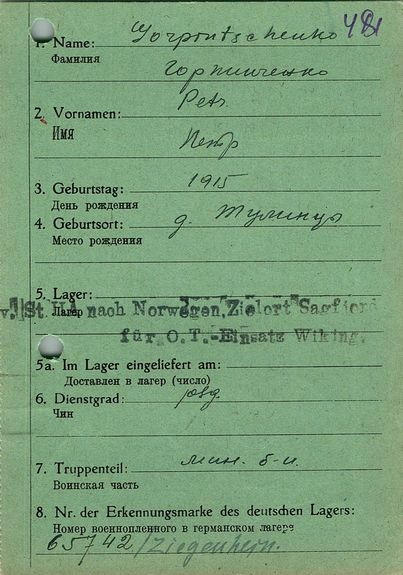 1. Name: Gorpintschenko 481
Фамилия
Горпинченко
2. Vornamen: Petr.
Имя
Петр
3. Geburtstag: 1915
День рождения
4. Geburtsort: д. Тулинцы
Место рождения
5. Lager:
Лагерь
v. St. IIA nach Norwegen, Zielort Sagfjord
für O.T.-Einsatz Wiking.
5a. Im Lager eingeliefert am:
Доставлен в лагер (число)
6. Dienstgrad: ряд.
Чин
7. Truppenteil: мин. б-н.
Воинская часть
8. Nr. der Erkennungsmarke des deutschen Lagers:
Номер военнопленного в германском лагере
65742/Ziegenhein.